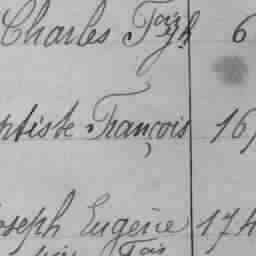 Charles Fois 6
ptiste François 16
oseph Eugène 174
Fois